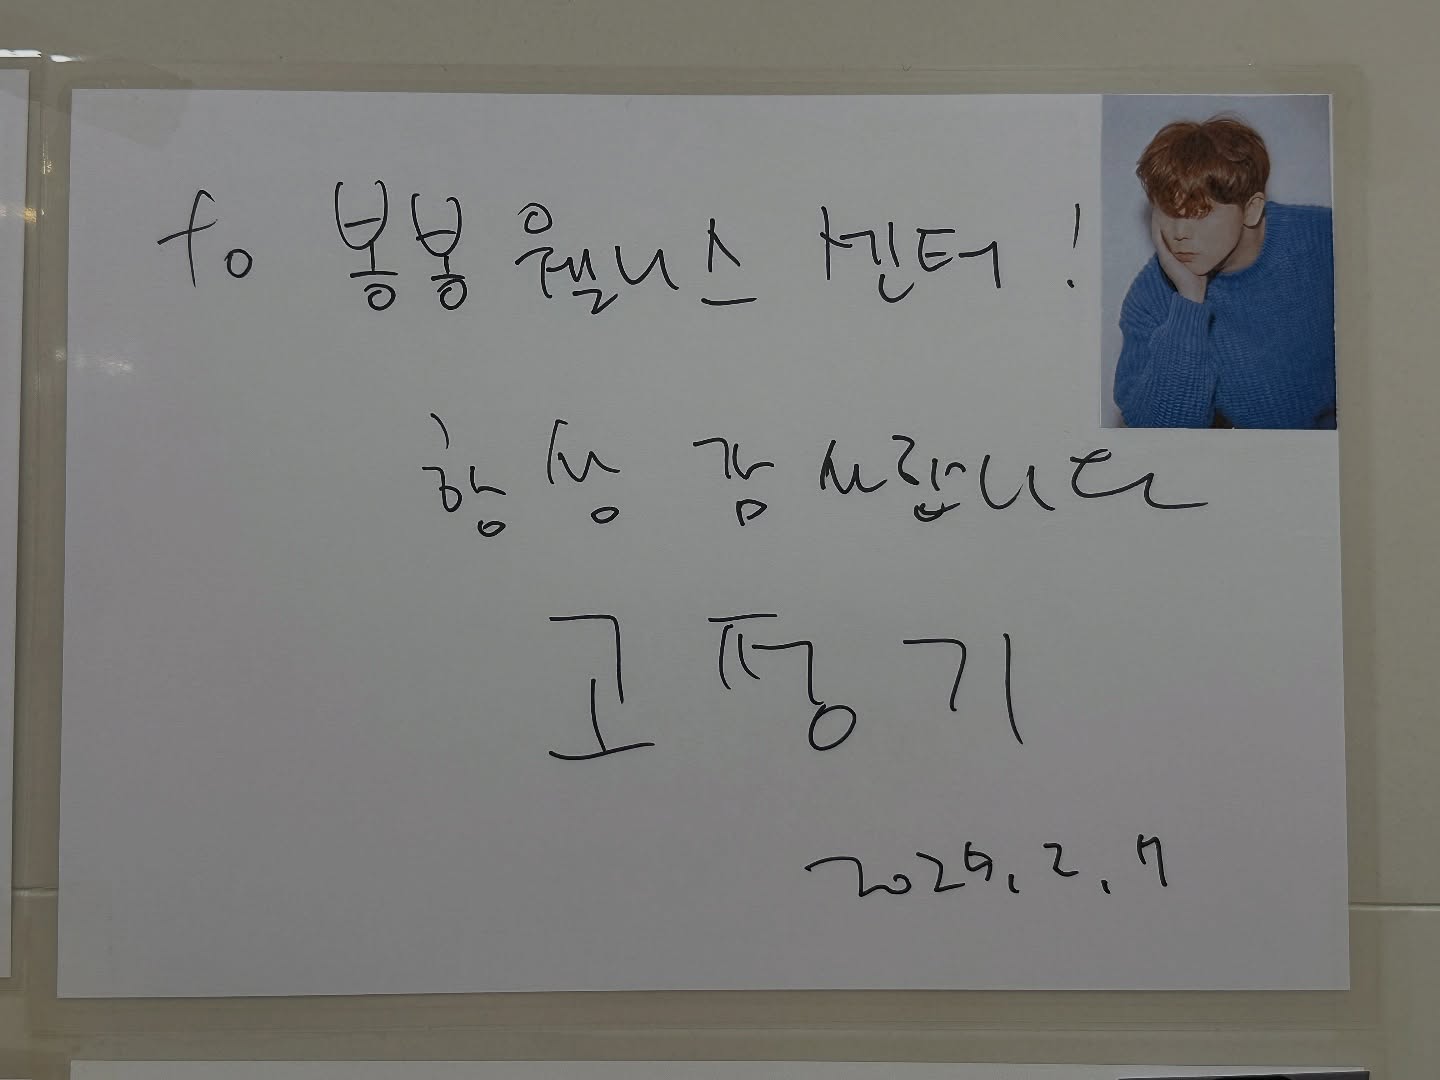 To 봉봉 웰니스 센터!
항상 감사합니다
고정기
2025. 2. 7